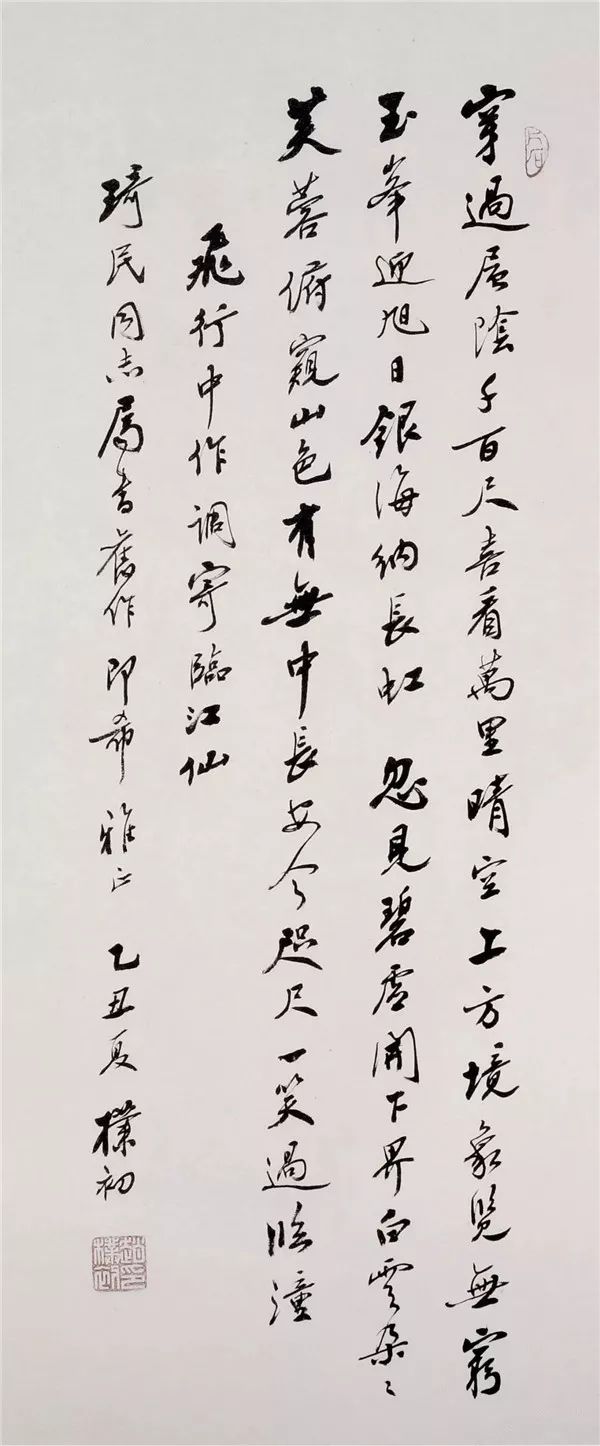 穿過層陰千百尺喜看萬里晴空上方境象览無窮
玉峯迎旭日銀海納長虹 忽見碧虛開下界白雲朵々
芙蓉俯窺山色有無中長安今咫尺一笑過臨潼
飛行中作調寄臨江仙
琦民同志屬書舊作即希雅正 乙丑夏 樸初
趙樸初印